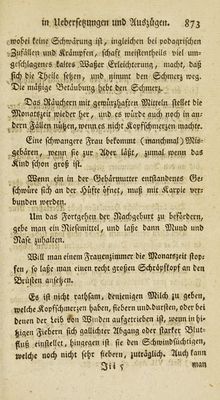 in Uebersetzungen und Auszügen. 873
wobei keine Schwärung ist, ingleichen bei podagrischen
Zufällen und Krämpfen, schaft meistentheils viel um-
geschlagenes kaltes Waßer Erleichterung, macht, daß
sich die Theile setzen, und nimmt den Schmerz weg.
Die mäßige Betäubung hebt den Schmerz.
Das Räuchern mit gewürzhaften Mitteln stellet die
Monatszeit wieder her, und es würde auch noch in an-
dern Fällen nützen, wenn es nicht Kopfschmerzen machte.
Eine schwangere Frau bekommt (manchmal) Mis-
gebären, wenn sie zur Ader läßt, zumal wenn das
Kind schon groß ist.
Wenn ein in der Gebärmutter entstandenes Ge-
schwüre sich an der Hüfte öfnet, muß mit Karpie ver-
bunden werden.
Um das Fortgehen der Nachgeburt zu befördern,
gebe man ein Niesemittel, und laße dann Mund und
Nase zuhalten.
Will man einem Frauenzimmer die Monatszeit stop-
fen, so laße man einen recht großen Schröpfkopf an den
Brüsten ansetzen.
Es ist nicht rathsam, denjenigen Milch zu geben,
welche Kopfschmerzen haben, fiebern und dursten, oder bei
denen der Leib von Winden aufgetrieben ist, wenn in hi-
tzigen Fiebern sich gallichter Abgang oder starker Blut-
fluß einstellet, hingegen ist sie den Schwindsüchtigen,
welche noch nicht sehr fiebern, zuträglich. Auch kann
Iii 5 man